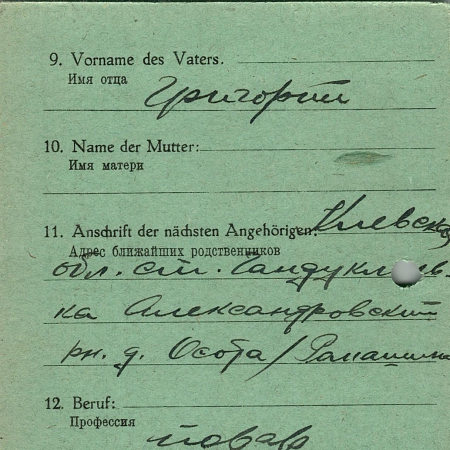 9. Vorname des Vaters.
Имя отца
Григорий
10. Name der Mutter:
Имя матери
11. Anschrift der nächsten Angehörigen: Киевская
Адрес ближайших родственников
обл. ст.
ка Александровский
рн. д. Осота /
12. Beruf:
Профессия
повар